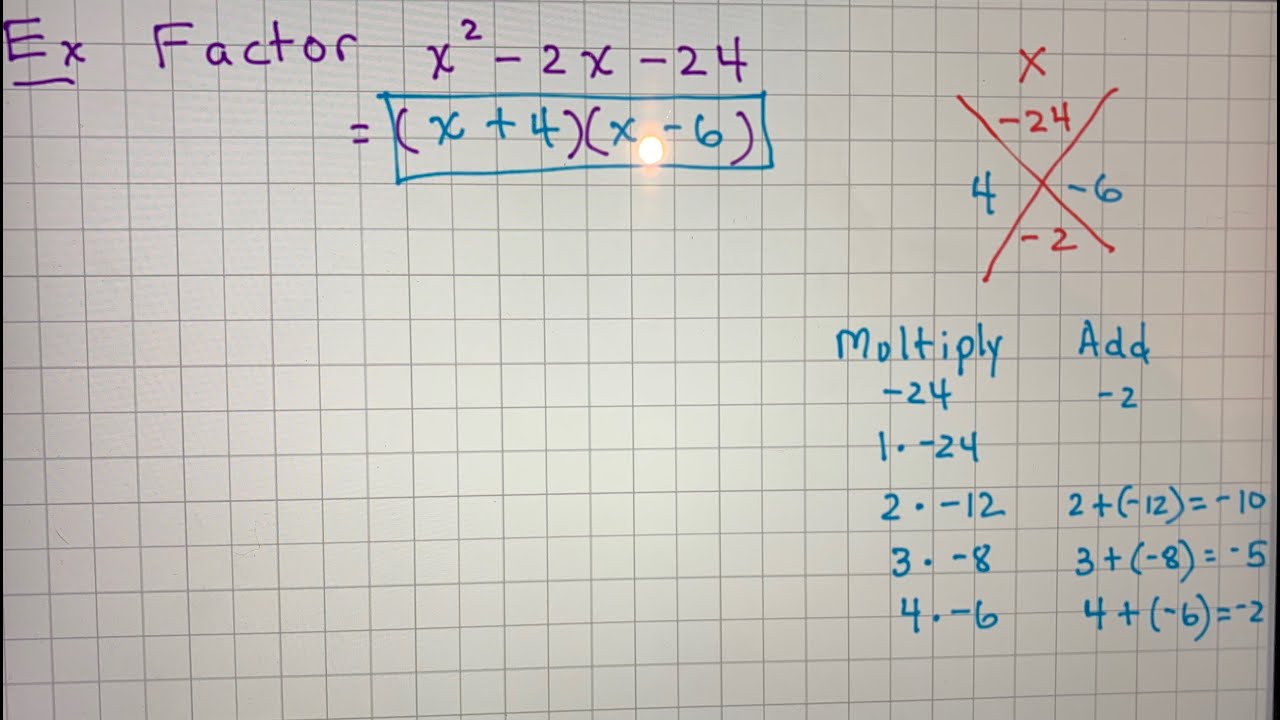 Ex Factor x² - 2x - 24
= (x + 4)(x - 6)
x
-24
4 -6
-2
Multiply Add
-24 -2
1 · -24
2 · -12 2 + (-12) = -10
3 · -8 3 + (-8) = -5
4 · -6 4 + (-6) = -2